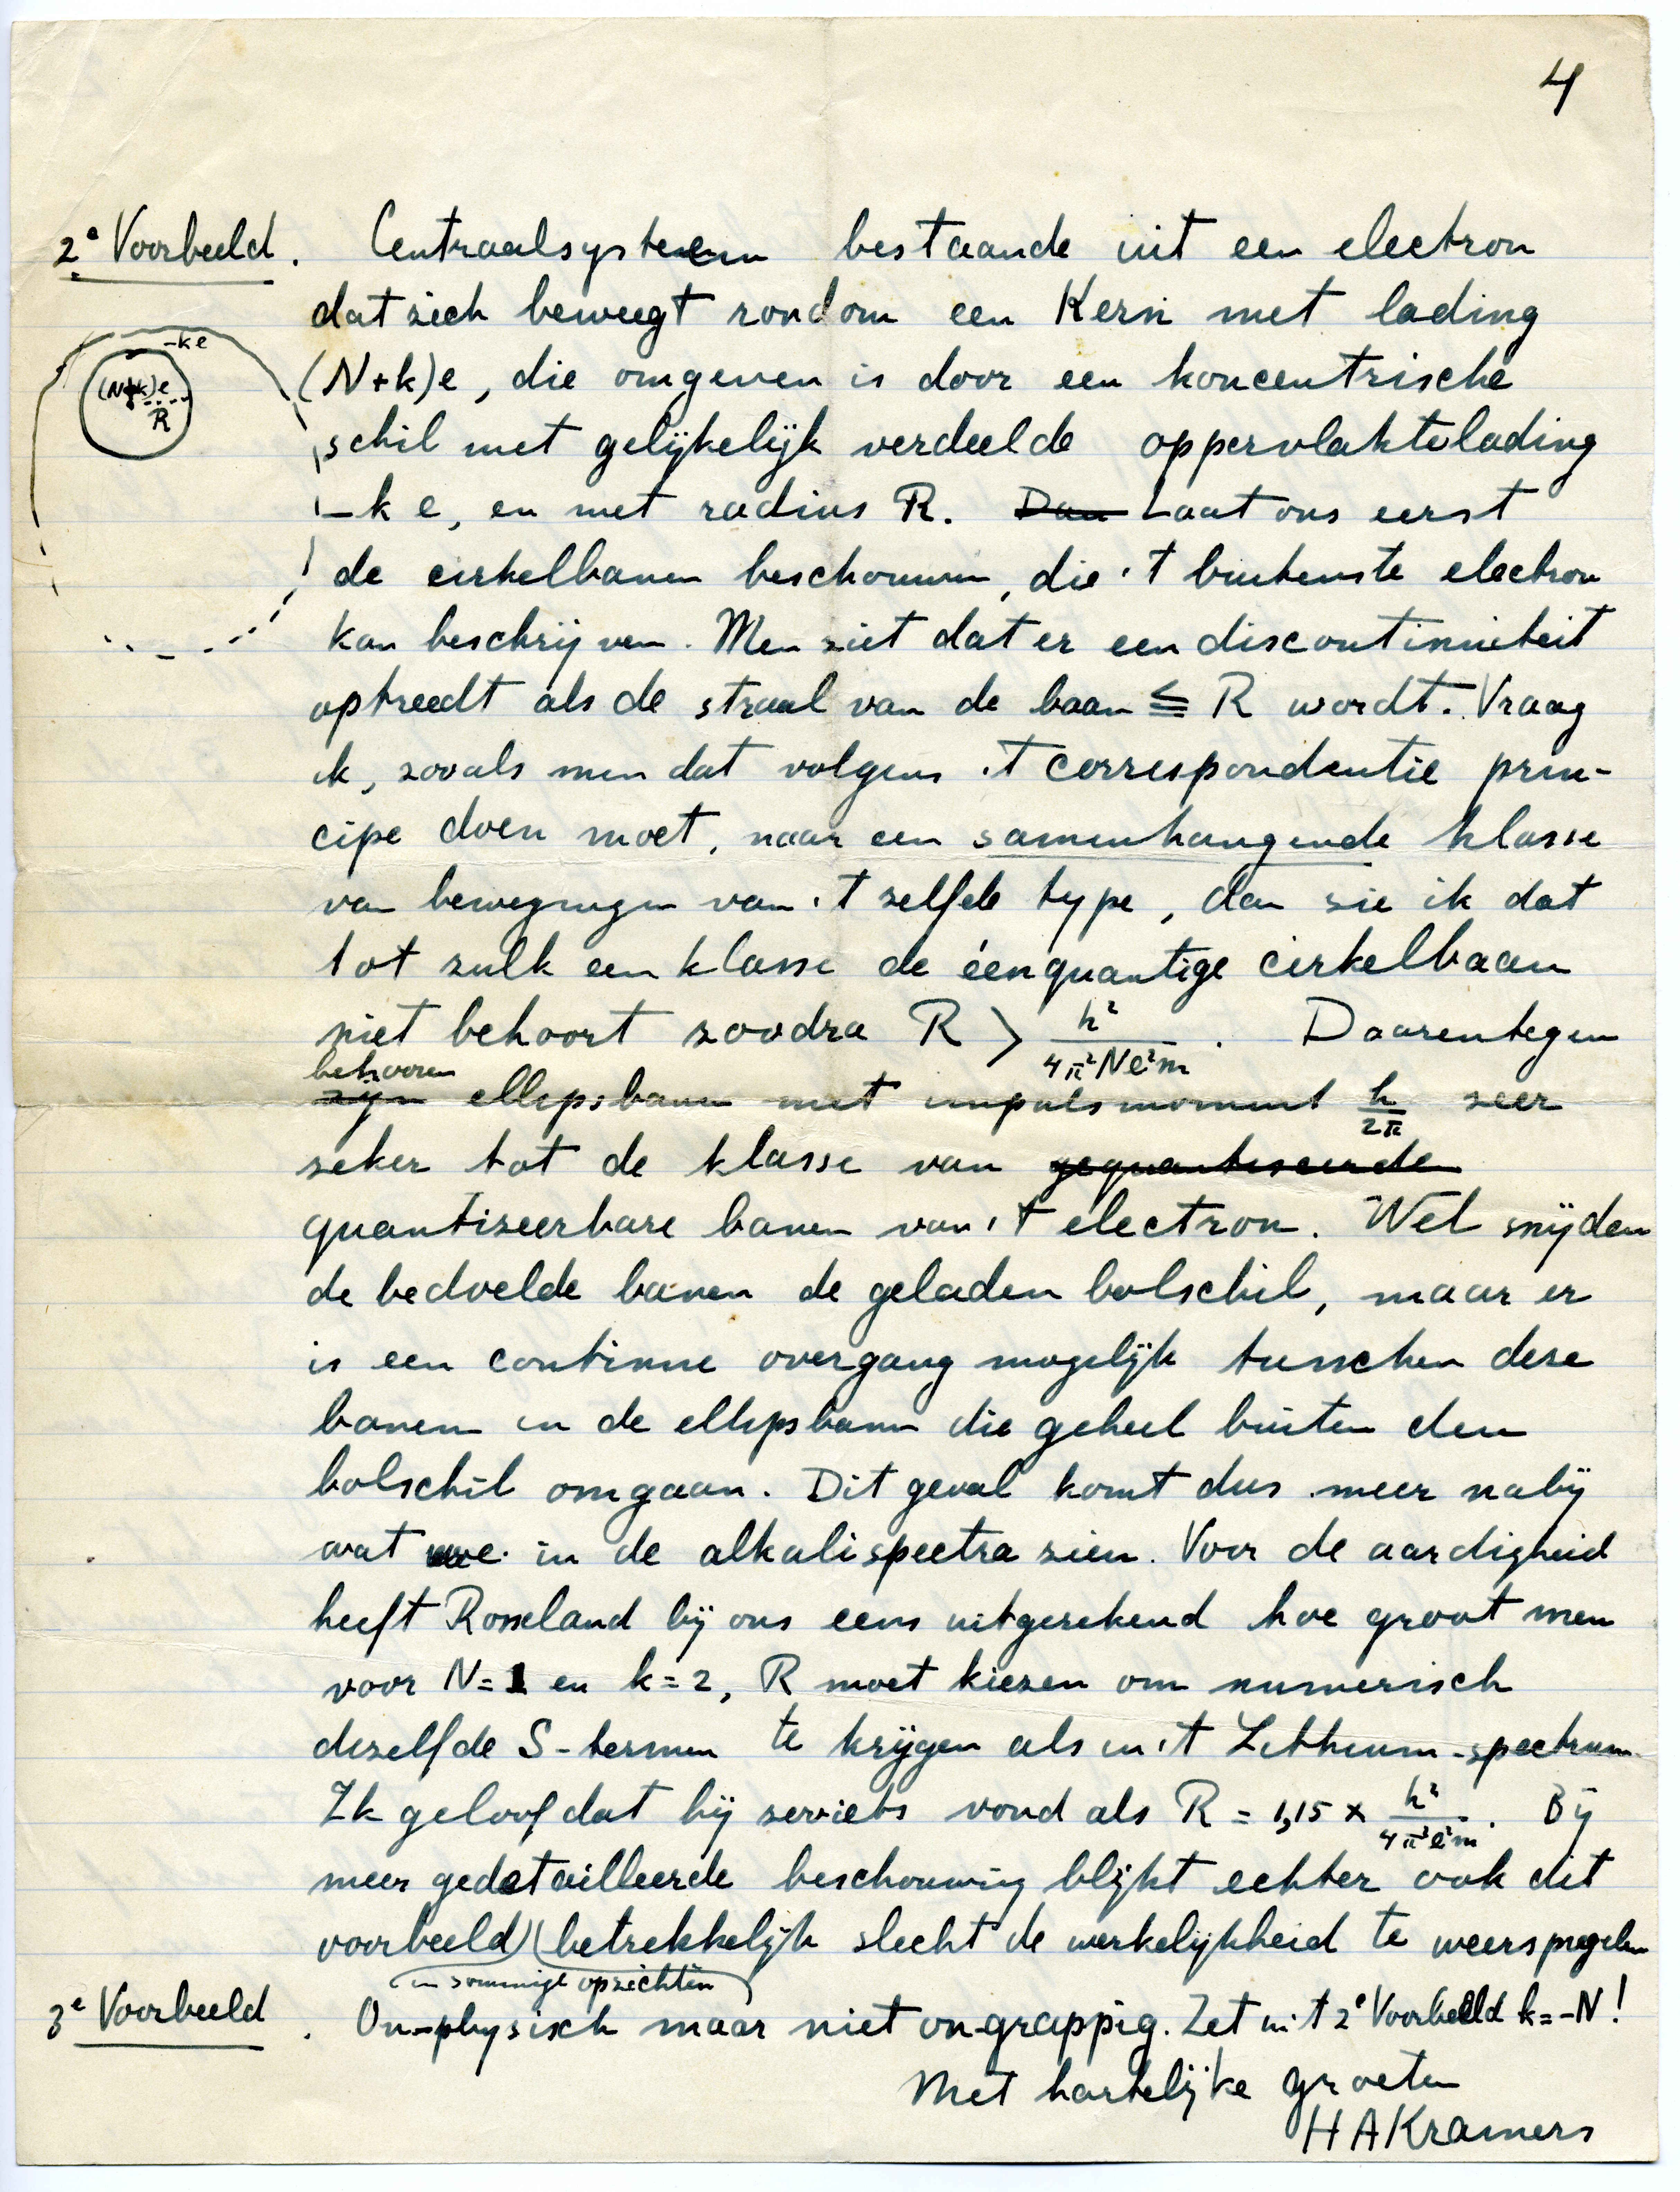 4
2e Voorbeeld. Centraalsysteem bestaande uit een electron
dat zich beweegt rondom een Kern met lading
-ke
(N+k)e
R
(N+k)e, die omgeven is door een koncentrische
schil met gelijkelijk verdeelde oppervlaktelading
-k e, en met radius R. Dan Laat ons eerst
de cirkelbanen beschouwen, die 't buitenste electron
kan beschrijven. Men ziet dat er een discontinuiteit
optreedt als de straal van de baan ≦ R wordt. Vraag
ik, zooals men dat volgens 't correspondentie prin-
cipe doen moet, naar een samenhangende klasse
van bewegingen van 't zelfde type, dan zie ik dat
tot zulk een klasse de éénquantige cirkelbaan
niet behoort zoodra R > h²/4π²Ne²m. Daarentegen
behooren
zijn ellipsbanen met impulsmoment h/2π zeer
zeker tot de klasse van gequantiseerde
quantizeerbare banen van 't electron. Wel snijden
de bedoelde banen de geladen bolschil, maar er
is een continue overgang mogelijk tusschen deze
banen en de ellipsbanen die geheel buiten den
bolschil omgaan. Dit geval komt dus meer nabij
wat we in de alkalispectra zien. Voor de aardigheid
heeft Rosseland bij ons eens uitgerekend hoe groot men
voor N=1 en k=2, R moet kiezen om numerisch
dezelfde S-termen te krijgen als in 't Lithium-spectrum.
Ik geloof dat hij zooiets vond als R = 1,15 x h²/4π²e²m. Bij
meer gedetailleerde beschouwing blijkt echter ook dit
voorbeeld betrekkelijk slecht de werkelijkheid te weerspiegelen
in sommige opzichten
3e Voorbeeld. On-physisch maar niet on-grappig. Zet in 't 2e Voorbeeld k=-N!
Met hartelijke groeten
HAKramers